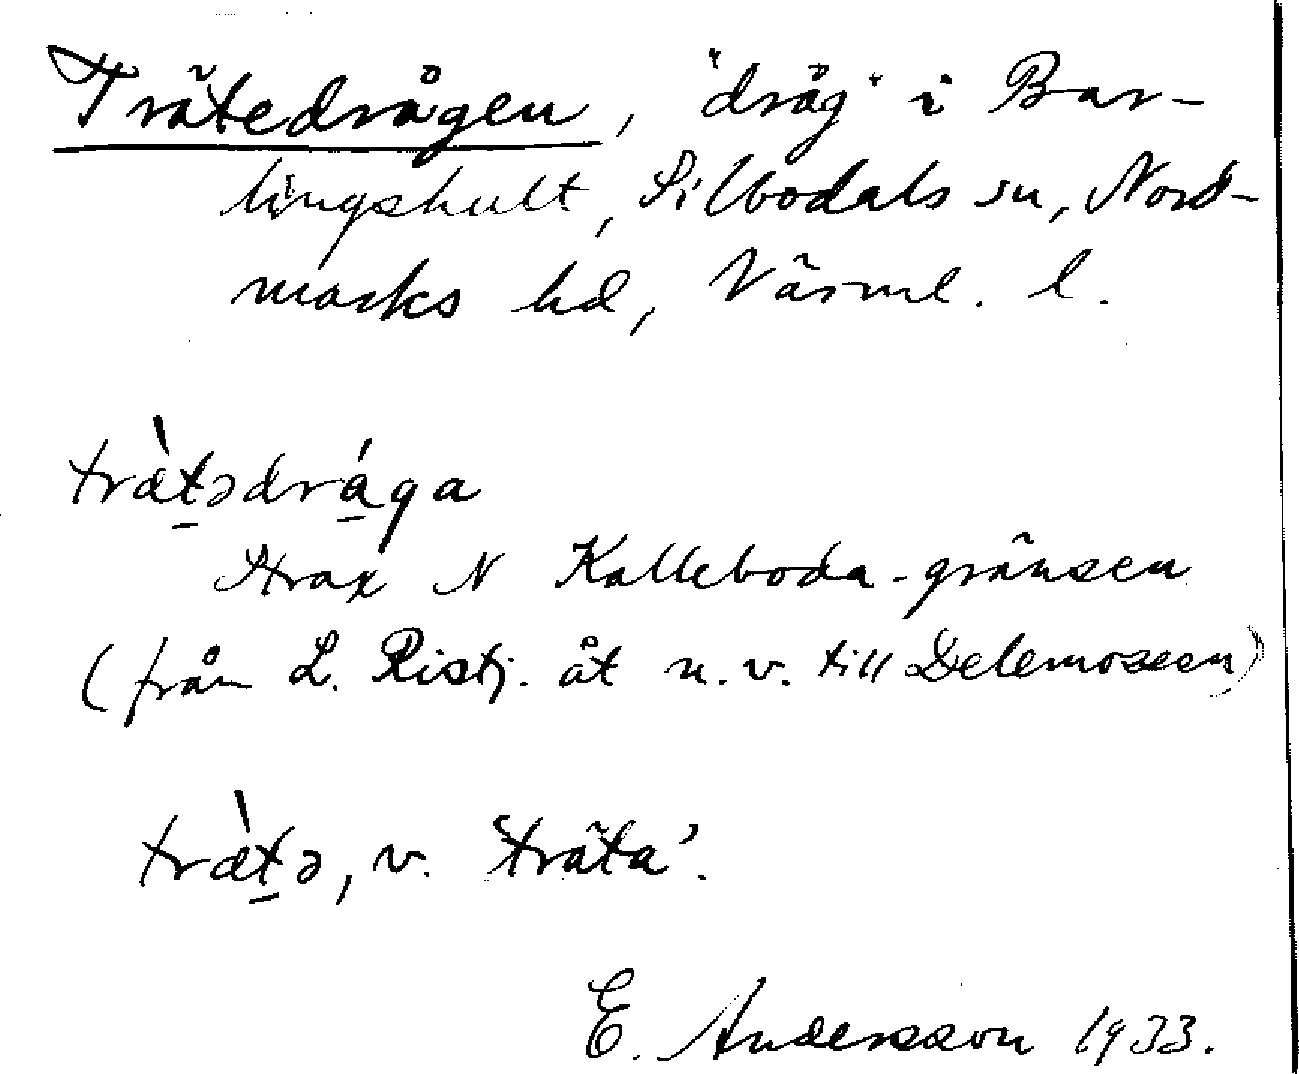 Trätedrågen, "dråg" i Bar-
lingshult, Silbodals sn, Nord-
marks hd, Värml. l.
trǽt̲ədrága̲
Strax N Kalleboda-gränsen
(från L. Ristj. åt n.v. till Delemossen)
træ̀t̲ə, v. 'träta'.
E. Andersson 1933.